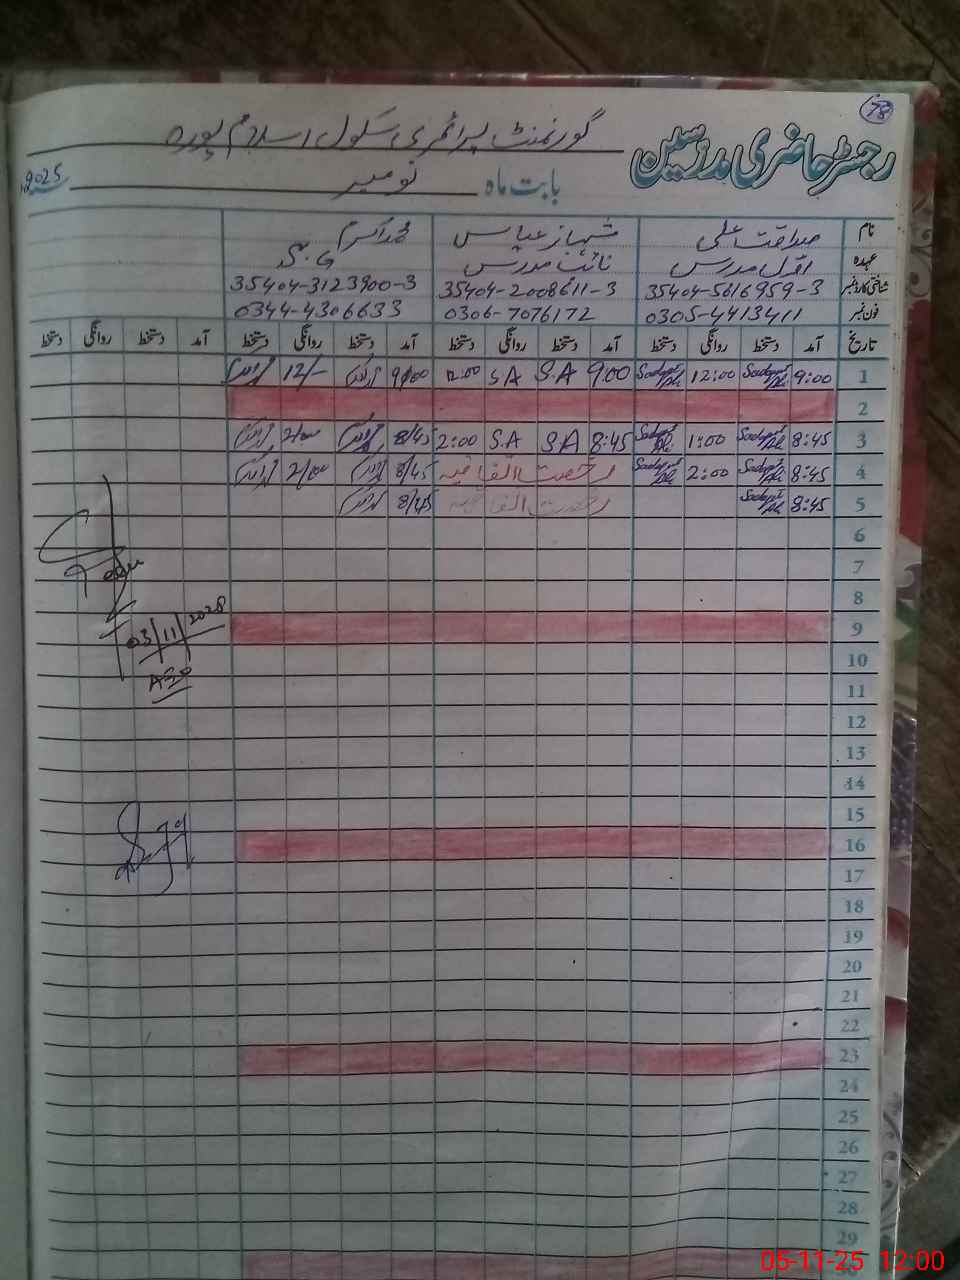 78
رجسٹر حاضری مدرسین گورنمنٹ پرائمری سکول اسلام پورہ
بابت ماہ نومبر 2025
نام صداقت علی شہباز عباس محمد اسلم
عہدہ اول مدرس نائب مدرس
شناختی کارڈ نمبر 35404-5616959-3 35404-2008611-3 35404-3123900-3
فون نمبر 0305-4413411 0306-7076172 0344-4306633
تاریخ آمد دستخط روانگی دستخط آمد دستخط روانگی دستخط آمد دستخط روانگی دستخط آمد دستخط روانگی دستخط
1 9:00 Sadaqat Ali 12:00 Sadaqat Ali 9:00 S.A S.A 12:00 9/00 12/-
2
3 8:45 Sadaqat Ali 1:00 Sadaqat Ali 8:45 S.A S.A 2:00 8/45 2/00
4 8:45 Sadaqat Ali 2:00 Sadaqat Ali رخصت اتفاقیہ 8/45 2/00
5 8:45 Sadaqat Ali رخصت اتفاقیہ 8/45
6
7
8
9
03/11/2028
10
11
12
13
14
15
16
17
18
19
20
21
22
23
24
25
26
27
28
29
05-11-25 12:00